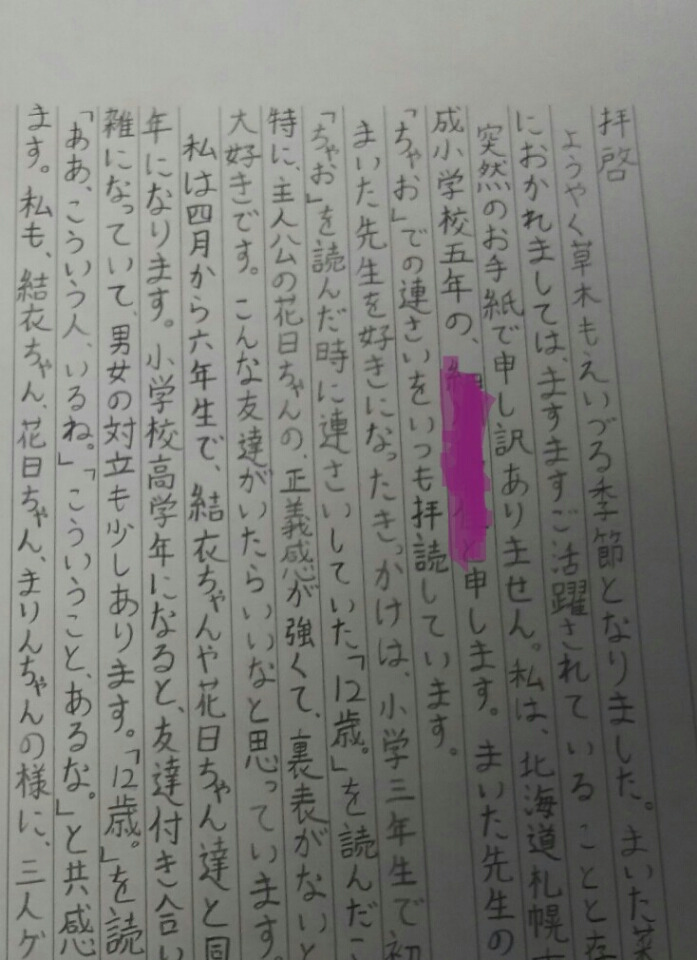 拝啓
ようやく草木もえいづる季節となりました。まいた菜
におかれましては、ますますご活躍されていることと存
突然のお手紙で申し訳ありません。私は、北海道札幌市
成小学校五年の、と申します。まいた先生の
「ちゃお」での連さいをいつも拝読しています。
まいた先生を好きになったきっかけは、小学三年生で初
「ちゃお」を読んだ時に連さいしていた「12歳。」を読んだこ
特に、主人公の花日ちゃんの、正義感が強くて、裏表がないと
大好きです。こんな友達がいたらいいなと思っています。
私は四月から六年生で、結衣ちゃんや花日ちゃん達と同
年になります。小学校高学年になると、友達付き合い
雑になっていて、男女の対立も少しあります。「12歳。」を読
「ああ、こういう人、いるね。」「こういうこと、あるな。」と共感
ます。私も、結衣ちゃん、花日ちゃん、まりんちゃんの様に、三人グ